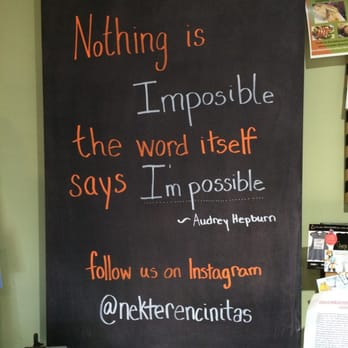 Nothing is
Imposible
the word itself
says I'm possible
~ Audrey Hepburn
follow us on Instagram
@nekterencinitas